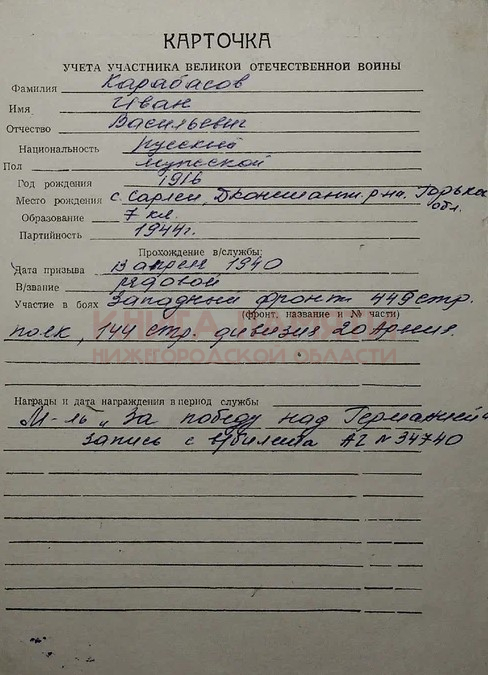 КАРТОЧКА
УЧЕТА УЧАСТНИКА ВЕЛИКОЙ ОТЕЧЕСТВЕННОЙ ВОЙНЫ
Фамилия Карабасов
Имя Иван
Отчество Васильевич
Национальность Русский
Пол мужской
Год рождения 1916
Место рождения с. Сарлеи, Дконстант. р-на. Горьков
обл.
Образование 7 кл.
Партийность 1944г.
Прохождение в/службы:
Дата призыва 13 апреля 1940
В/звание рядовой
Участие в боях Западный фронт 449 стр.
(фронт, название и № части)
полк, 144 стр. дивизия 20 Армия.
КНИГА ПАМЯТИ
НИЖЕГОРОДСКОЙ ОБЛАСТИ
Награды и дата награждения в период службы
М-ль „За победу над Германией"
Запись с в/билета АГ № 34740